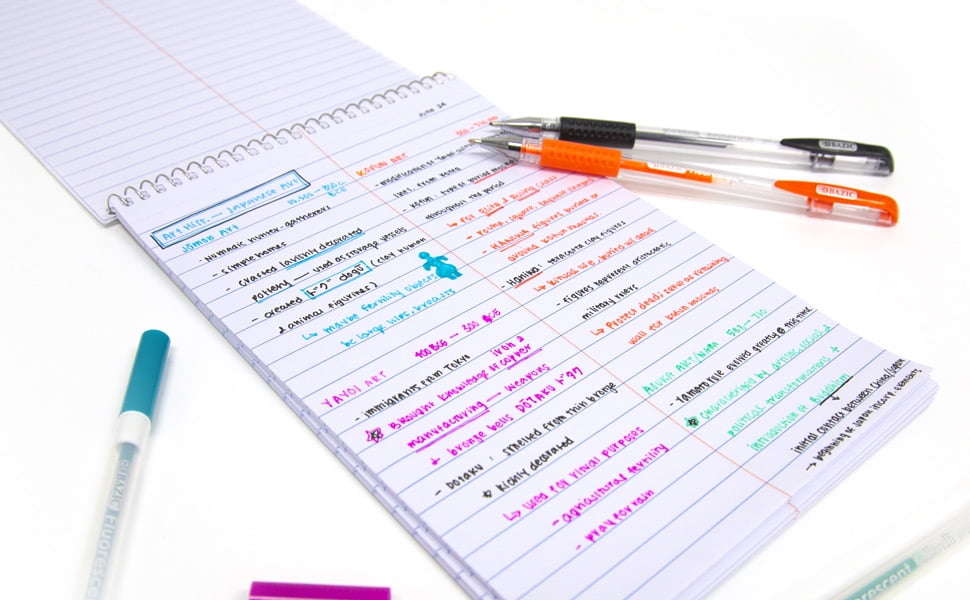 June 24
Art Hist. — Japanese Art
10,500 - 300
BCE
Jōman Art
- Nomadic hunter-gatherers
- simple homes
- crafted lavishly decorated
pottery — used as storage vessels
- created "ドグ dogū" (clay human
& animal figurines)
↳ maybe fertility objects
bc large hips, breasts
400 BCE — 300 CE
YAYOI ART
- immigrants from TOKYO
Brought knowledge of copper
iron &
manufacturing — weapons
& bronze bells DŌTAKU ドタク
- DOTAKU : smelted from thin bronze
↳ highly decorated
↳ used for ritual purposes
- agricultural fertility
- pray for rain
KOFUN ART
- modification of Yayoi
infl. from Korea
- Kofun : type of burial
throughout the period
↳ FOR ELITE & RULING CLASS
- round, square, keyhole shaped
- HANIWA figures buried or
around kofun mounds
- Haniwa : terracotta clay figures
↳ ritual use, buried w/ dead
- figures represent aristocratic
military rulers
↳ Protect dead, serve as retaining
wall for kofun mounds
ASUKA ART/NARA 552 - 710
- Yamato rule evolved greatly @ this time
characterized by artistic, social &
political transformations +
introduction of Buddhism
initial contact between China/Japan
→ beginning of Japan incorp.
BAZIC
BAZIC
BAZIC Fluorescent